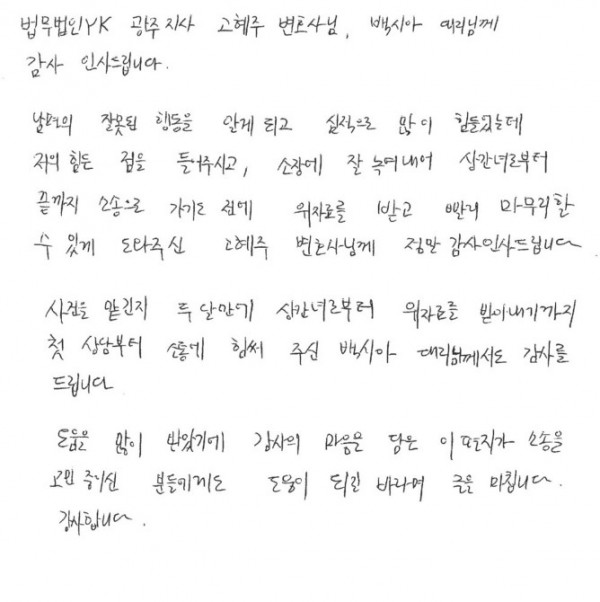 법무법인YK 광주지사 고혜주 변호사님, 백시아 대리님께
감사 인사드립니다.
남편의 잘못된 행동을 알게 되고 심적으로 많이 힘들었는데
저의 힘든 점을 들어주시고, 소장에 잘 녹여내어 상간녀로부터
끝까지 소송으로 가기도 전에 위자료를 받고 빨리 마무리할
수 있게 도와주신 고혜주 변호사님께 정말 감사인사드립니다
사건을 맡긴지 두 달만에 상간녀로부터 위자료를 받아내기까지
첫 상담부터 소통에 힘써 주신 백시아 대리님께서도 감사를
드립니다
도움을 많이 받았기에 감사의 마음을 담은 이 편지가 소송을
고민 중이신 분들에게도 도움이 되길 바라며 글을 마칩니다.
감사합니다.